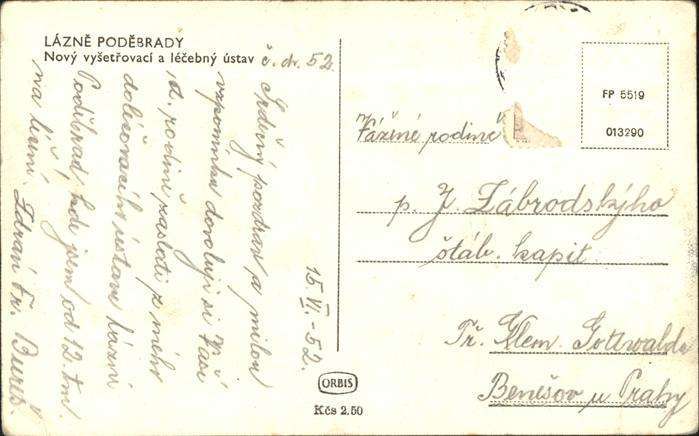 LÁZNĚ PODĚBRADY
Nový vyšetřovací a léčebný ústav č. d. 52.
15. VI. - 52.
Srdečný pozdrav a milou
vzpomínku dovoluji si Vaší
ct. rodině zaslati z mého
doléčovacího ústavu Lázní
Poděbrad, kde jsem od 12. t.m.
na léčení. Zdraví Fr. Bureš.
FP 5519
013290
Vážené rodině
p. J. Zábrodskýho
štáb. kapit.
Tř. Klem. Gottwalda
Benešov u Prahy
ORBIS
Kčs 2.50